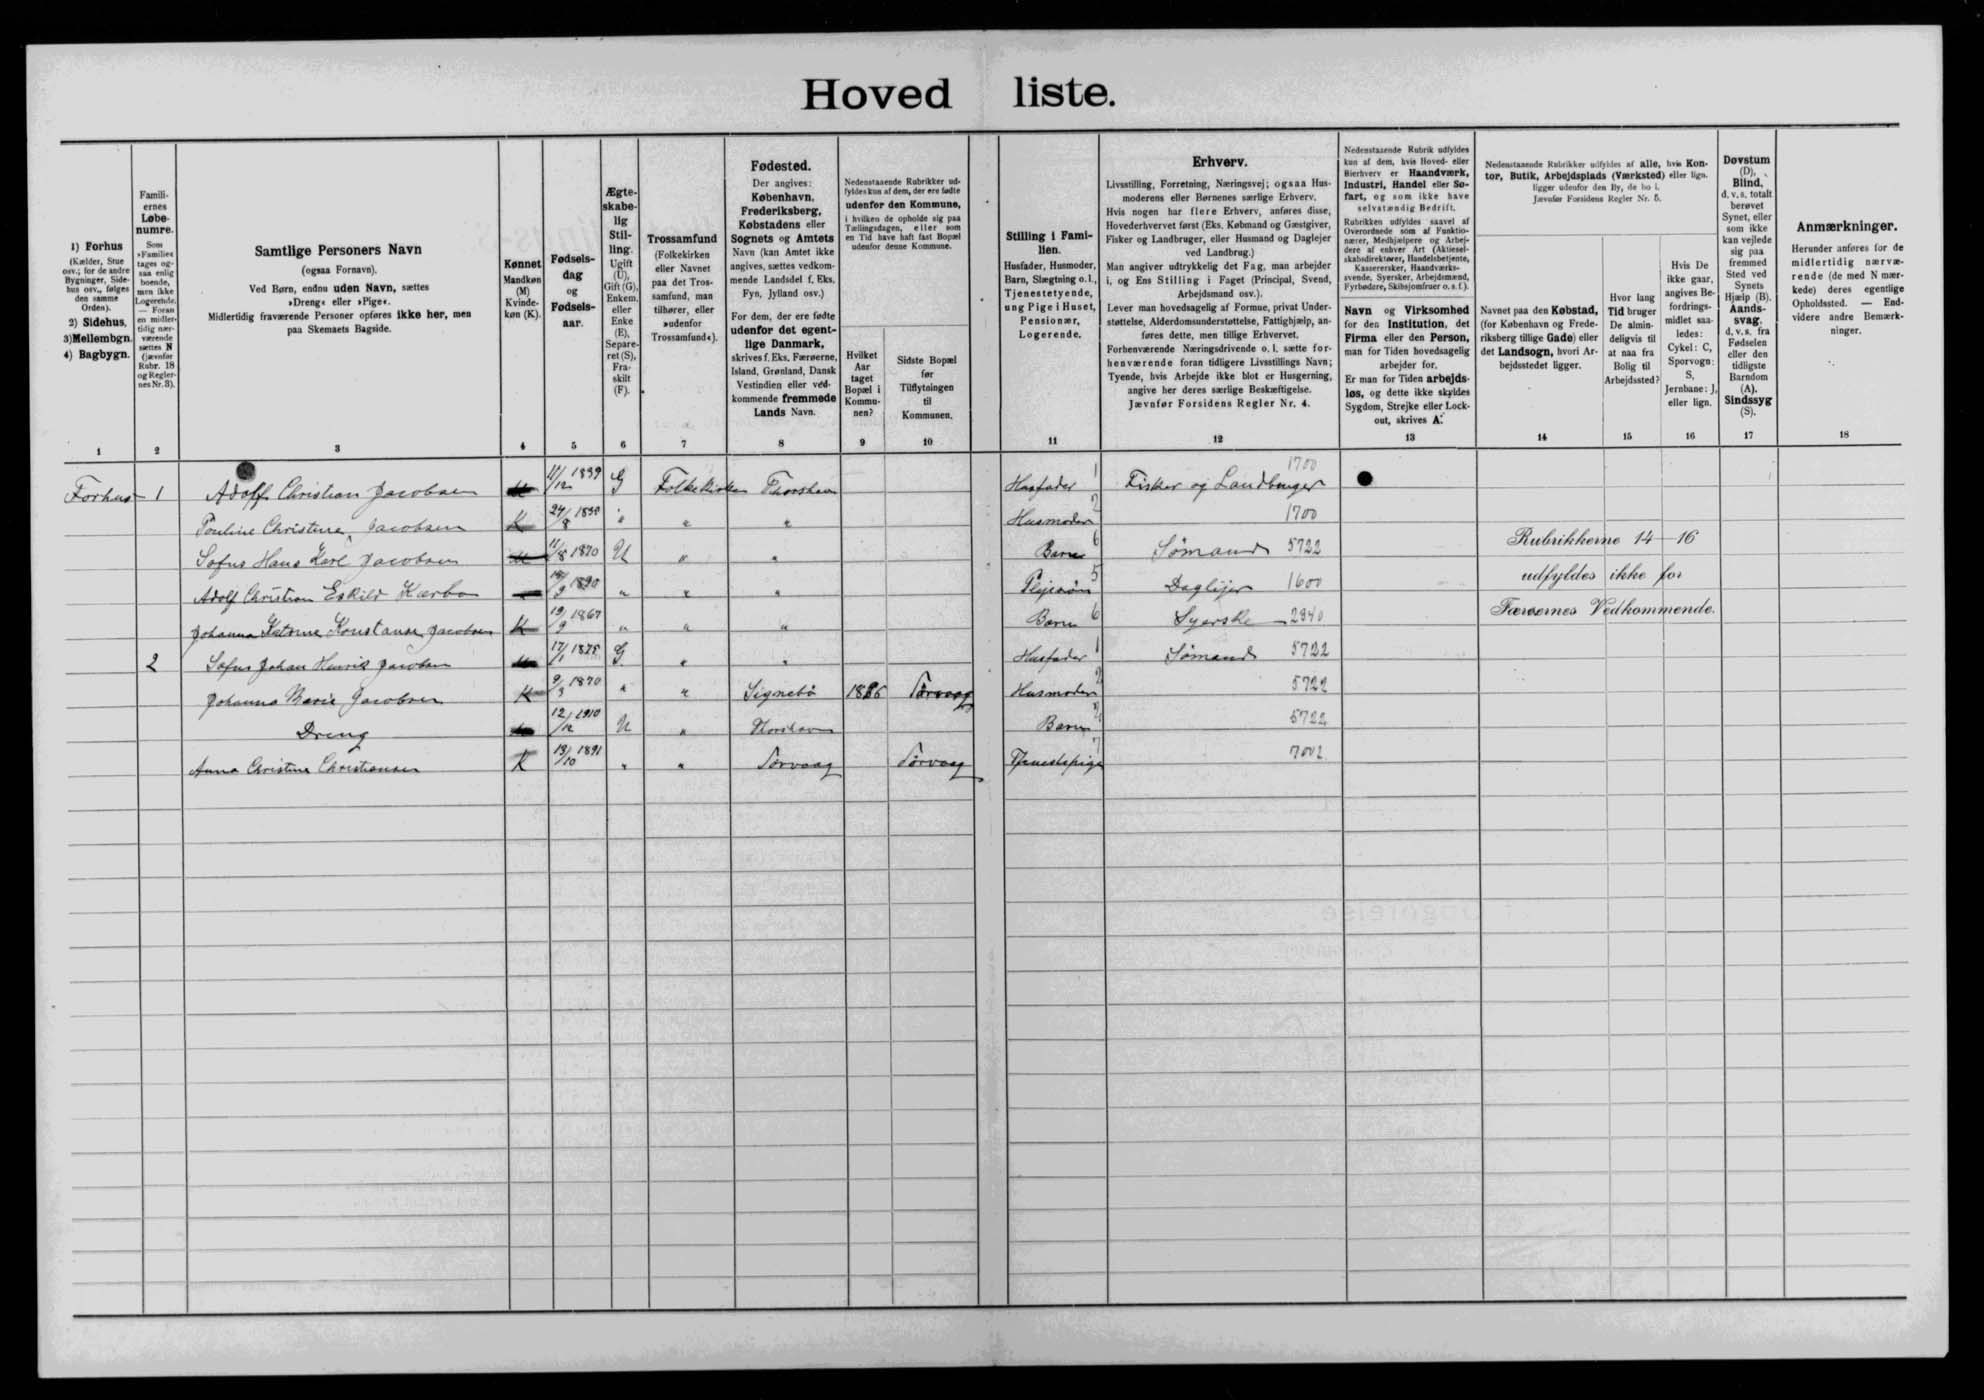 Hovedliste.
1) Forhus
(Kælder, Stue
osv.; for de andre
Bygninger, Side-
hus osv., følges
den samme
Orden).
2) Sidehus,
3) Mellembgn.
4) Bagbygn.
1
Famili-
ernes
Løbe-
numre.
Som
»Familie«
tages og-
saa enlig
boende,
men ikke
Logerende.
— Foran
en midler-
tidig nær-
værende
sættes N
(jævnfør
Rubr. 18
og Regler-
nes Nr. 3).
2
Samtlige Personers Navn
(ogsaa Fornavn).
Ved Børn, endnu uden Navn, sættes
»Dreng« eller »Pige«.
Midlertidig fraværende Personer opføres ikke her, men
paa Skemaets Bagside.
3
Kønnet
Mandkøn
(M)
Kvinde-
køn (K).
4
Fødsels-
dag
og
Fødsels-
aar.
5
Ægte-
skabe-
lig
Stil-
ling.
Ugift
(U),
Gift (G),
Enkem.
eller
Enke
(E),
Separe-
ret (S),
Fra-
skilt
(F).
6
Trossamfund
(Folkekirken
eller Navnet
paa det Tros-
samfund, man
tilhører, eller
»udenfor
Trossamfund«).
7
Fødested.
Der angives:
København,
Frederiksberg,
Købstadens eller
Sognets og Amtets
Navn (kan Amtet ikke
angives, sættes vedkom-
mende Landsdel f. Eks.
Fyn, Jylland osv.)
For dem, der ere fødte
udenfor det egent-
lige Danmark,
skrives f. Eks. Færøerne,
Island, Grønland, Dansk
Vestindien eller ved-
kommende fremmede
Lands Navn.
8
Nedenstaaende Rubrikker ud-
fyldes kun af dem, der ere fødte
udenfor den Kommune,
i hvilken de opholde sig paa
Tællingsdagen, eller som
en Tid have haft fast Bopæl
udenfor denne Kommune.
Hvilket
Aar
taget
Bopæl i
Kommu-
nen?
9
Sidste Bopæl
før
Tilflytningen
til
Kommunen.
10
Stilling i Fami-
lien.
Husfader, Husmoder,
Barn, Slægtning o. l.,
Tjenestetyende,
ung Pige i Huset,
Pensionær,
Logerende.
11
Erhverv.
Livsstilling, Forretning, Næringsvej; ogsaa Hus-
moderens eller Børnenes særlige Erhverv.
Hvis nogen har flere Erhverv, anføres disse,
Hovederhvervet først (Eks. Købmand og Gæstgiver,
Fisker og Landbruger, eller Husmand og Daglejer
ved Landbrug.)
Man angiver udtrykkelig det Fag, man arbejder
i, og Ens Stilling i Faget (Principal, Svend,
Arbejdsmand osv.).
Lever man hovedsagelig af Formue, privat Under-
støttelse, Alderdomsunderstøttelse, Fattighjælp, an-
føres dette, men tillige Erhvervet.
Forhenværende Næringsdrivende o. l. sætte for-
henværende foran tidligere Livsstillings Navn;
Tyende, hvis Arbejde ikke blot er Husgerning,
angive her deres særlige Beskæftigelse.
Jævnfør Forsidens Regler Nr. 4.
12
Nedenstaaende Rubrik udfyldes
kun af dem, hvis Hoved- eller
Bierhverv er Haandværk,
Industri, Handel eller Sø-
fart, og som ikke have
selvstændig Bedrift.
Rubrikken udfyldes saavel af
Overordnede som af Funktio-
nærer, Medhjælpere og Arbej-
dere af enhver Art (Aktiesel-
skabsdirektører, Handelsbetjente,
Kasserersker, Haandværks-
svende, Syersker, Arbejdsmænd,
Fyrbødere, Skibsjomfruer o. s. f.).
Navn og Virksomhed
for den Institution, det
Firma eller den Person,
man for Tiden hovedsagelig
arbejder for.
Er man for Tiden arbejds-
løs, og dette ikke skyldes
Sygdom, Strejke eller Lock-
out, skrives A.
13
Nedenstaaende Rubrikker udfyldes af alle, hvis Kon-
tor, Butik, Arbejdsplads (Værksted) eller lign.
ligger udenfor den By, de bo i.
Jævnfør Forsidens Regler Nr. 5.
Navnet paa den Købstad,
(for København og Frede-
riksberg tillige Gade) eller
det Landsogn, hvori Ar-
bejdsstedet ligger.
14
Hvor lang
Tid bruger
De almin-
deligvis til
at naa fra
Bolig til
Arbejdssted?
15
Hvis De
ikke gaar,
angives Be-
fordrings-
midlet saa-
ledes:
Cykel: C,
Sporvogn:
S,
Jernbane: J,
eller lign.
16
Døvstum
(D),
Blind,
d. v. s. totalt
berøvet
Synet, eller
som ikke
kan vejlede
sig paa
fremmed
Sted ved
Synets
Hjælp (B).
Aands-
svag,
d. v. s. fra
Fødselen
eller den
tidligste
Barndom
(A).
Sindssyg
(S).
17
Anmærkninger.
Herunder anføres for de
midlertidig nærvæ-
rende (de med N mær-
kede) deres egentlige
Opholdssted. — End-
videre andre Bemærk-
ninger.
18
Forhus 1 Adolf Christian Jacobsen M 11/12 1839 G Folkekirken Thorshavn Husfader 1 Fisker og Landbruger 1700
Pouline Christine Jacobsen K 24/8 1838 " " " Husmoder 2 1700
Sofus Hans Karl Jacobsen M 11/8 1870 U " " Barn 6 Sømand 5722
Adolf Christian Eskild Kærbo M 1890 " " " Plejesøn 5 Daglejer 1600
Johanna Katrine Konstanse Jacobsen K 19/9 1867 " " " Barn 6 Syerske 2840
2 Sofus Johan Henrik Jacobsen M 17/1 1875 G " " Husfader 1 Sømand 5722
Johanna Marie Jacobsen K 9/3 1870 " " Signebö 1886 Sørvaag Husmoder 2 5722
Dreng M 12/12 1910 U " Thorshavn Barn 5722
Anna Christine Christiansen K 13/10 1891 " " Sørvaag Sørvaag Tjenestepige 7 7002
Rubrikkerne 14—16
udfyldes ikke for
Færøernes Vedkommende.